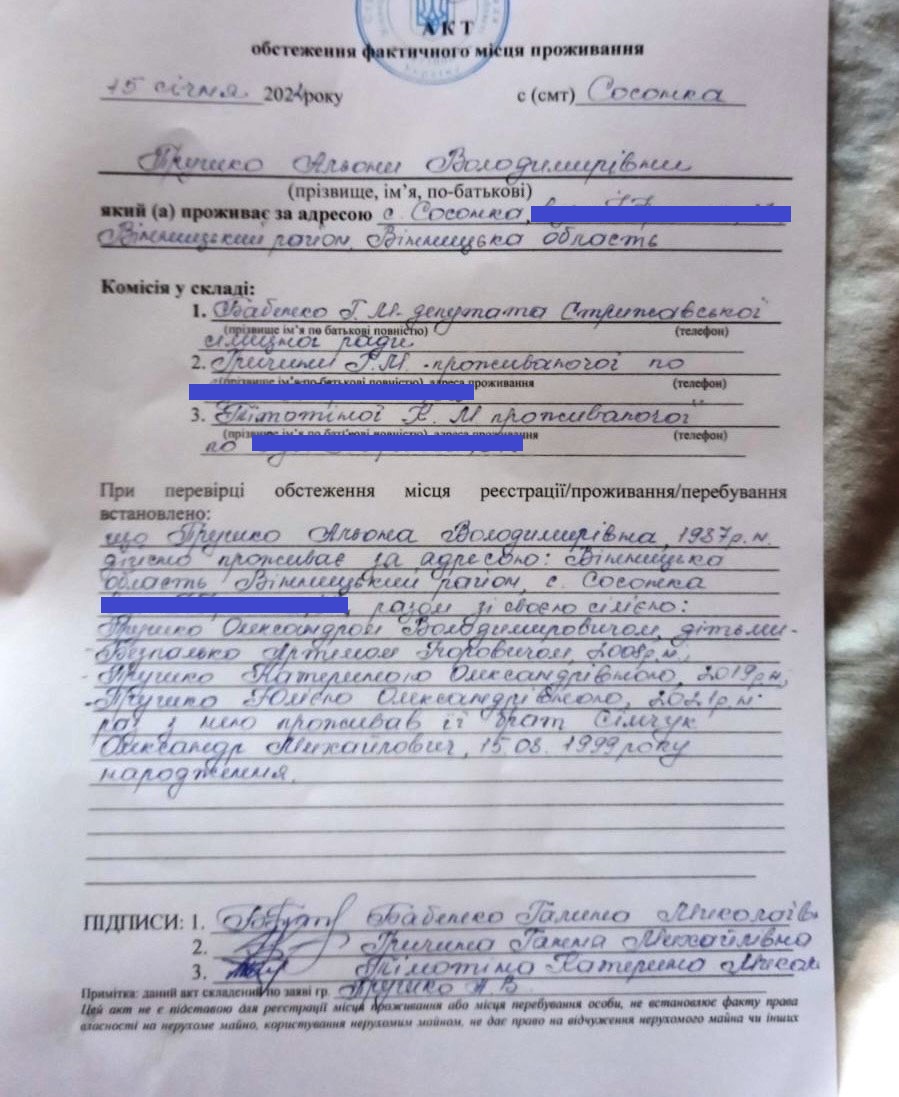 АКТ
обстеження фактичного місця проживання
15 січня 2024року с (смт) Сосонка
Альони Володимирівни
(прізвище, ім’я, по-батькові)
який (а) проживає за адресою с. Сосонка,
Вінницький район, Вінницька область
Комісія у складі:
1. Бабенко Г. М. депутата Стрижавської
(прізвище ім’я по батькові повністю) (телефон)
селищної ради
2. Гричини Г. М. проживаючої по
(прізвище ім’я по батькові повністю) адреса проживання (телефон)
3. Тімотіної К. М проживаючої
(прізвище ім’я по батькові повністю) адреса проживання (телефон)
по
При перевірці обстеження місця реєстрації/проживання/перебування
встановлено:
що Альона Володимирівна, 1987р.н.
дійсно проживає за адресою: Вінницька
область Вінницький район, с. Сосонка
разом зі своєю сім'єю:
Олександром Володимировичем, дітьми-
Безпалько Артемом 2008р.н.,
- Катериною Олександрівною, 2019р.н,
- Юлією Олександрівною, 2021р.н.
з нею проживав її брат Сімчук
Олександр Михайлович, 15.08.1999року
народження.
ПІДПИСИ: 1. Бабенко Галина Миколаївн
2. Гричина Ганна Михайлівна
3. Тімотіна Катерина Микол
Примітка: даний акт складений по заяві гр. А В
Цей акт не є підставою для реєстрації місця проживання або місця перебування особи, не встановлює факту права
власності на нерухоме майно, користування нерухомим майном, не дає право на відчуження нерухомого майна чи інших